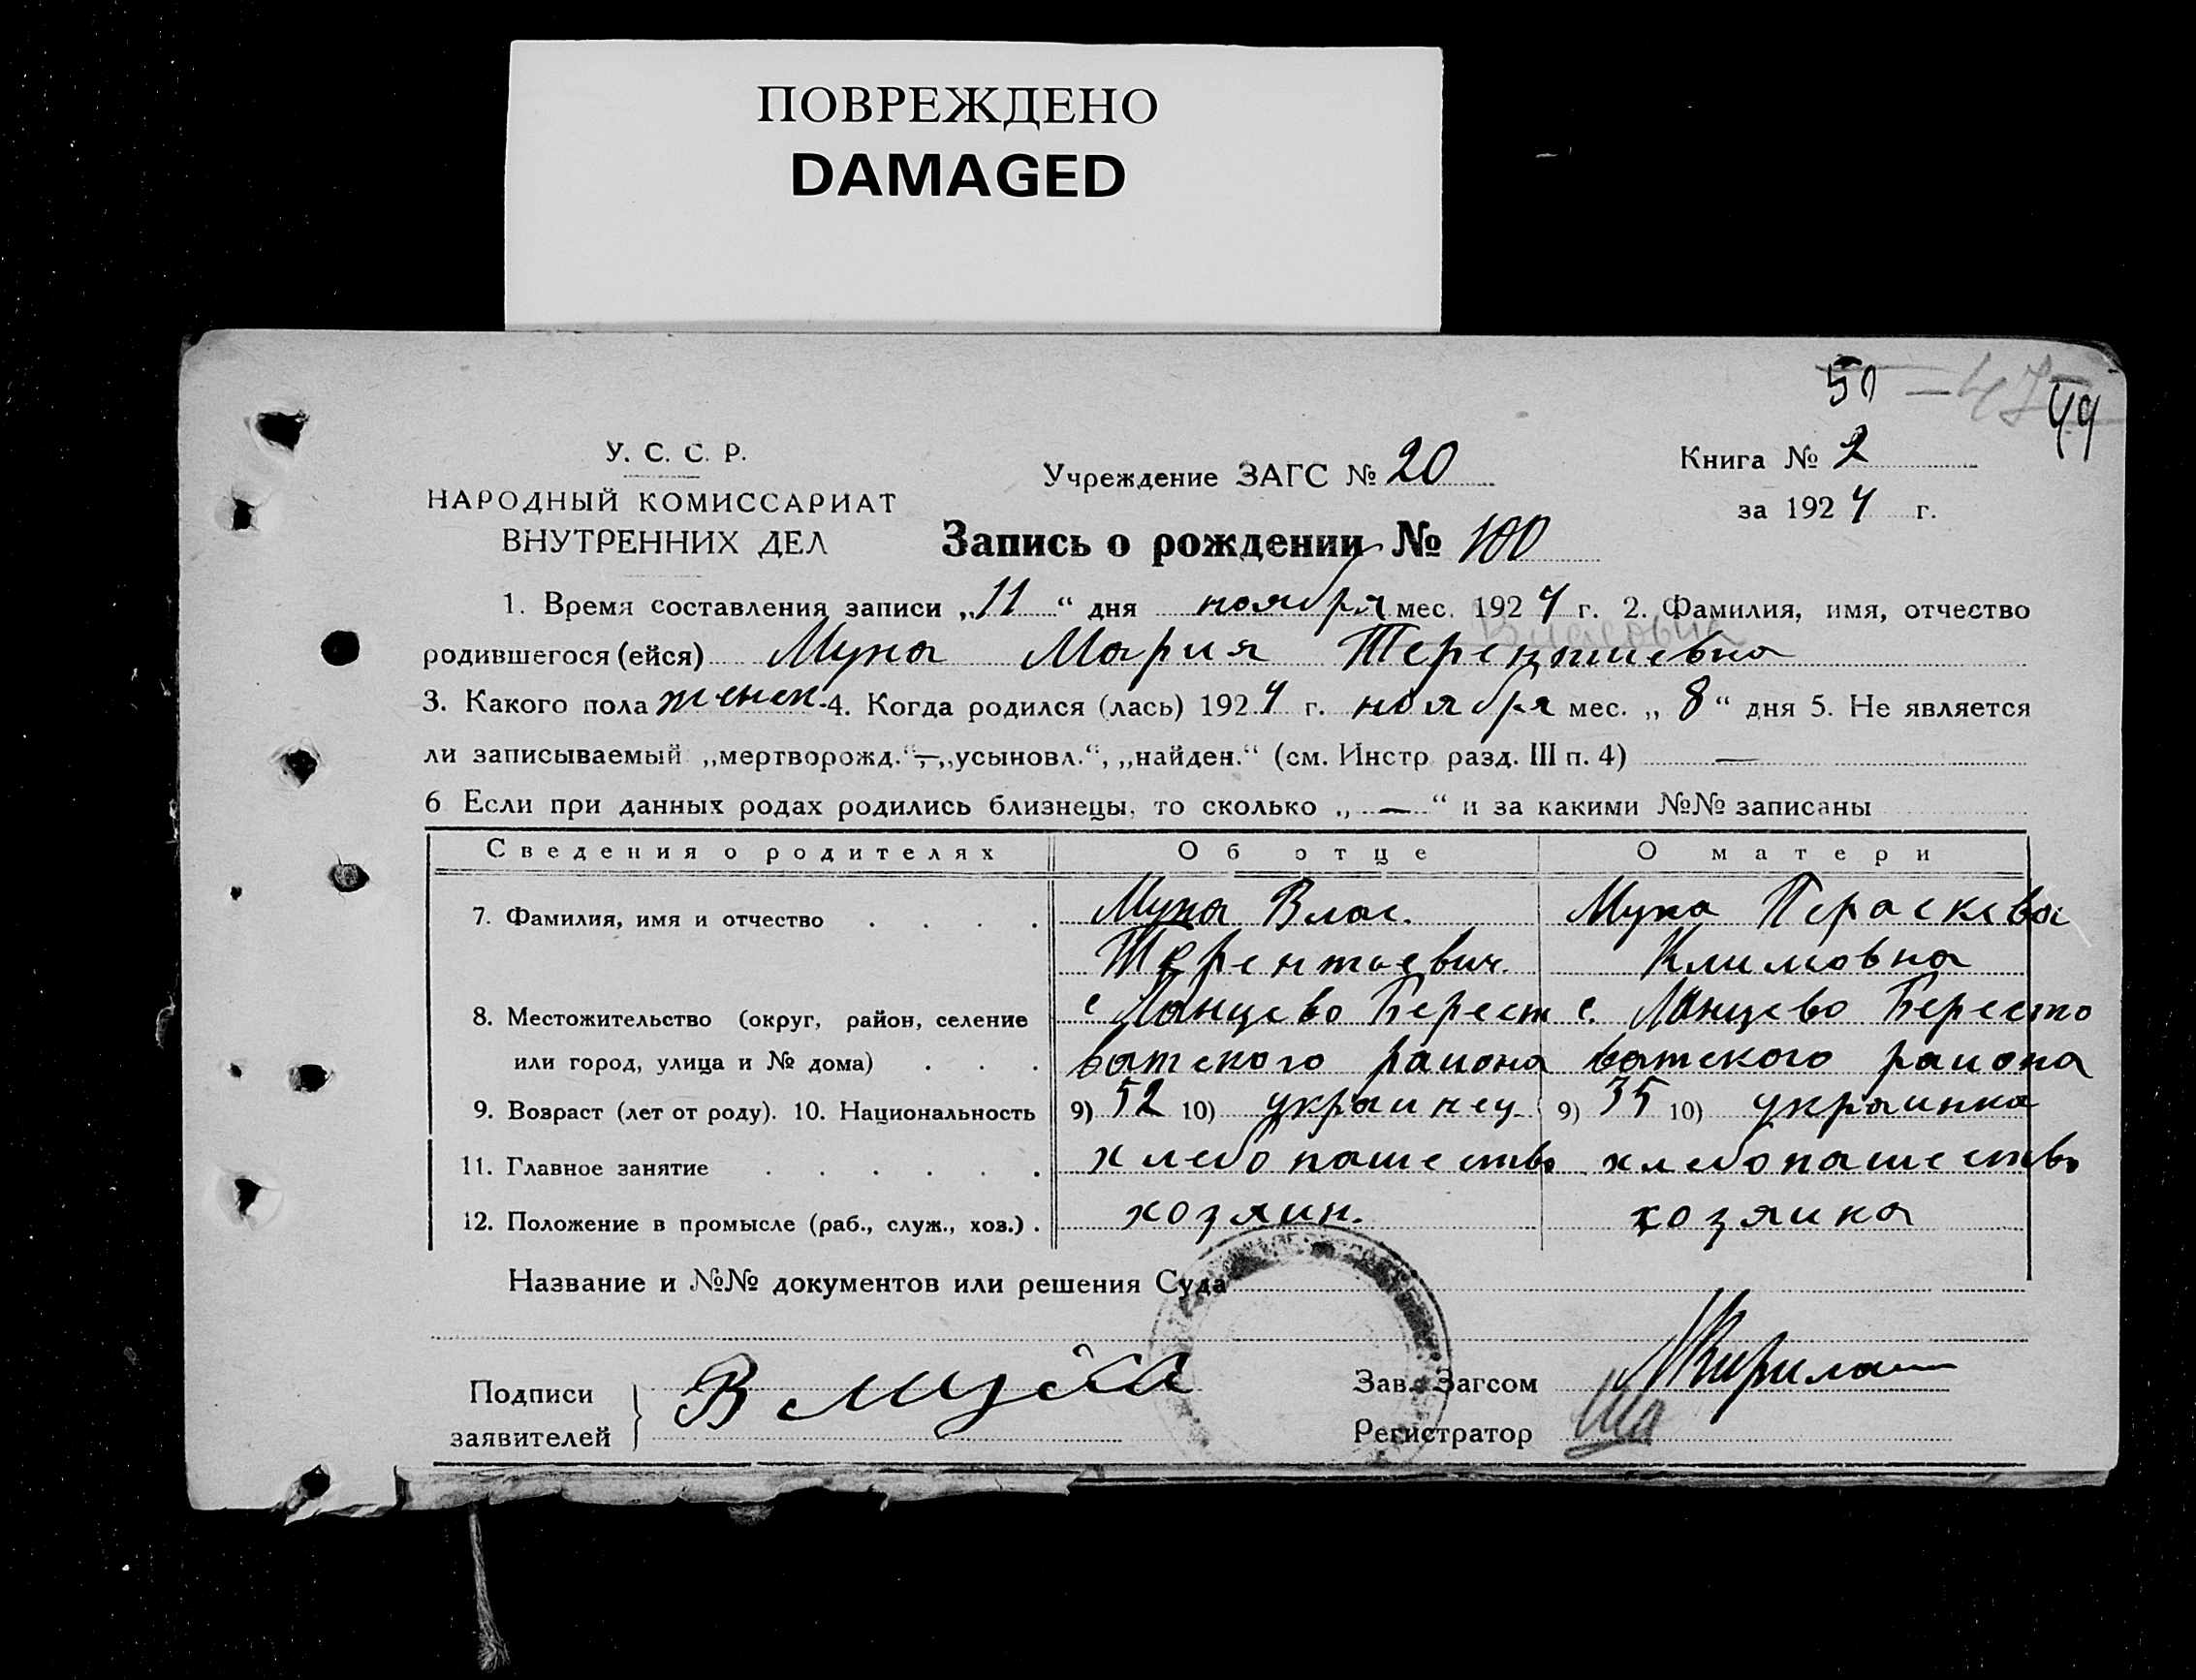 ПОВРЕЖДЕНО
DAMAGED
50 — 47 49
У. С. С. Р.
НАРОДНЫЙ КОМИССАРИАТ
ВНУТРЕННИХ ДЕЛ
Учреждение ЗАГС № 20
Книга № 2
за 1924 г.
Запись о рождении № 100
1. Время составления записи „11“ дня ноября мес. 1924 г. 2. Фамилия, имя, отчество
Власовна
родившегося (ейся) Муха Мария Терентиевна
3. Какого пола женск. 4. Когда родился (лась) 1924 г. ноября мес. „8“ дня 5. Не является
ли записываемый „мертворожд.“, „усыновл.“, „найден.“ (см. Инстр. разд. III п. 4) —
6 Если при данных родах родились близнецы, то сколько „—“ и за какими №№ записаны
Сведения о родителях Об отце О матери
7. Фамилия, имя и отчество . . . . Муха Влас. Муха Пераскева
Терентьевич. Климовна
8. Местожительство (округ, район, селение с Ланцево Берест с. Ланцево Бересто
или город, улица и № дома) . . . ватского района ватского района
9. Возраст (лет от роду). 10. Национальность 9) 52 10) украинец 9) 35 10) украинка
11. Главное занятие . . . . . . хлебопашество хлебопашество
12. Положение в промысле (раб., служ., хоз.) . хозяин. хозяика
Название и №№ документов или решения Суда
Подписи
заявителей
В Муха
Зав. Загсом
Регистратор